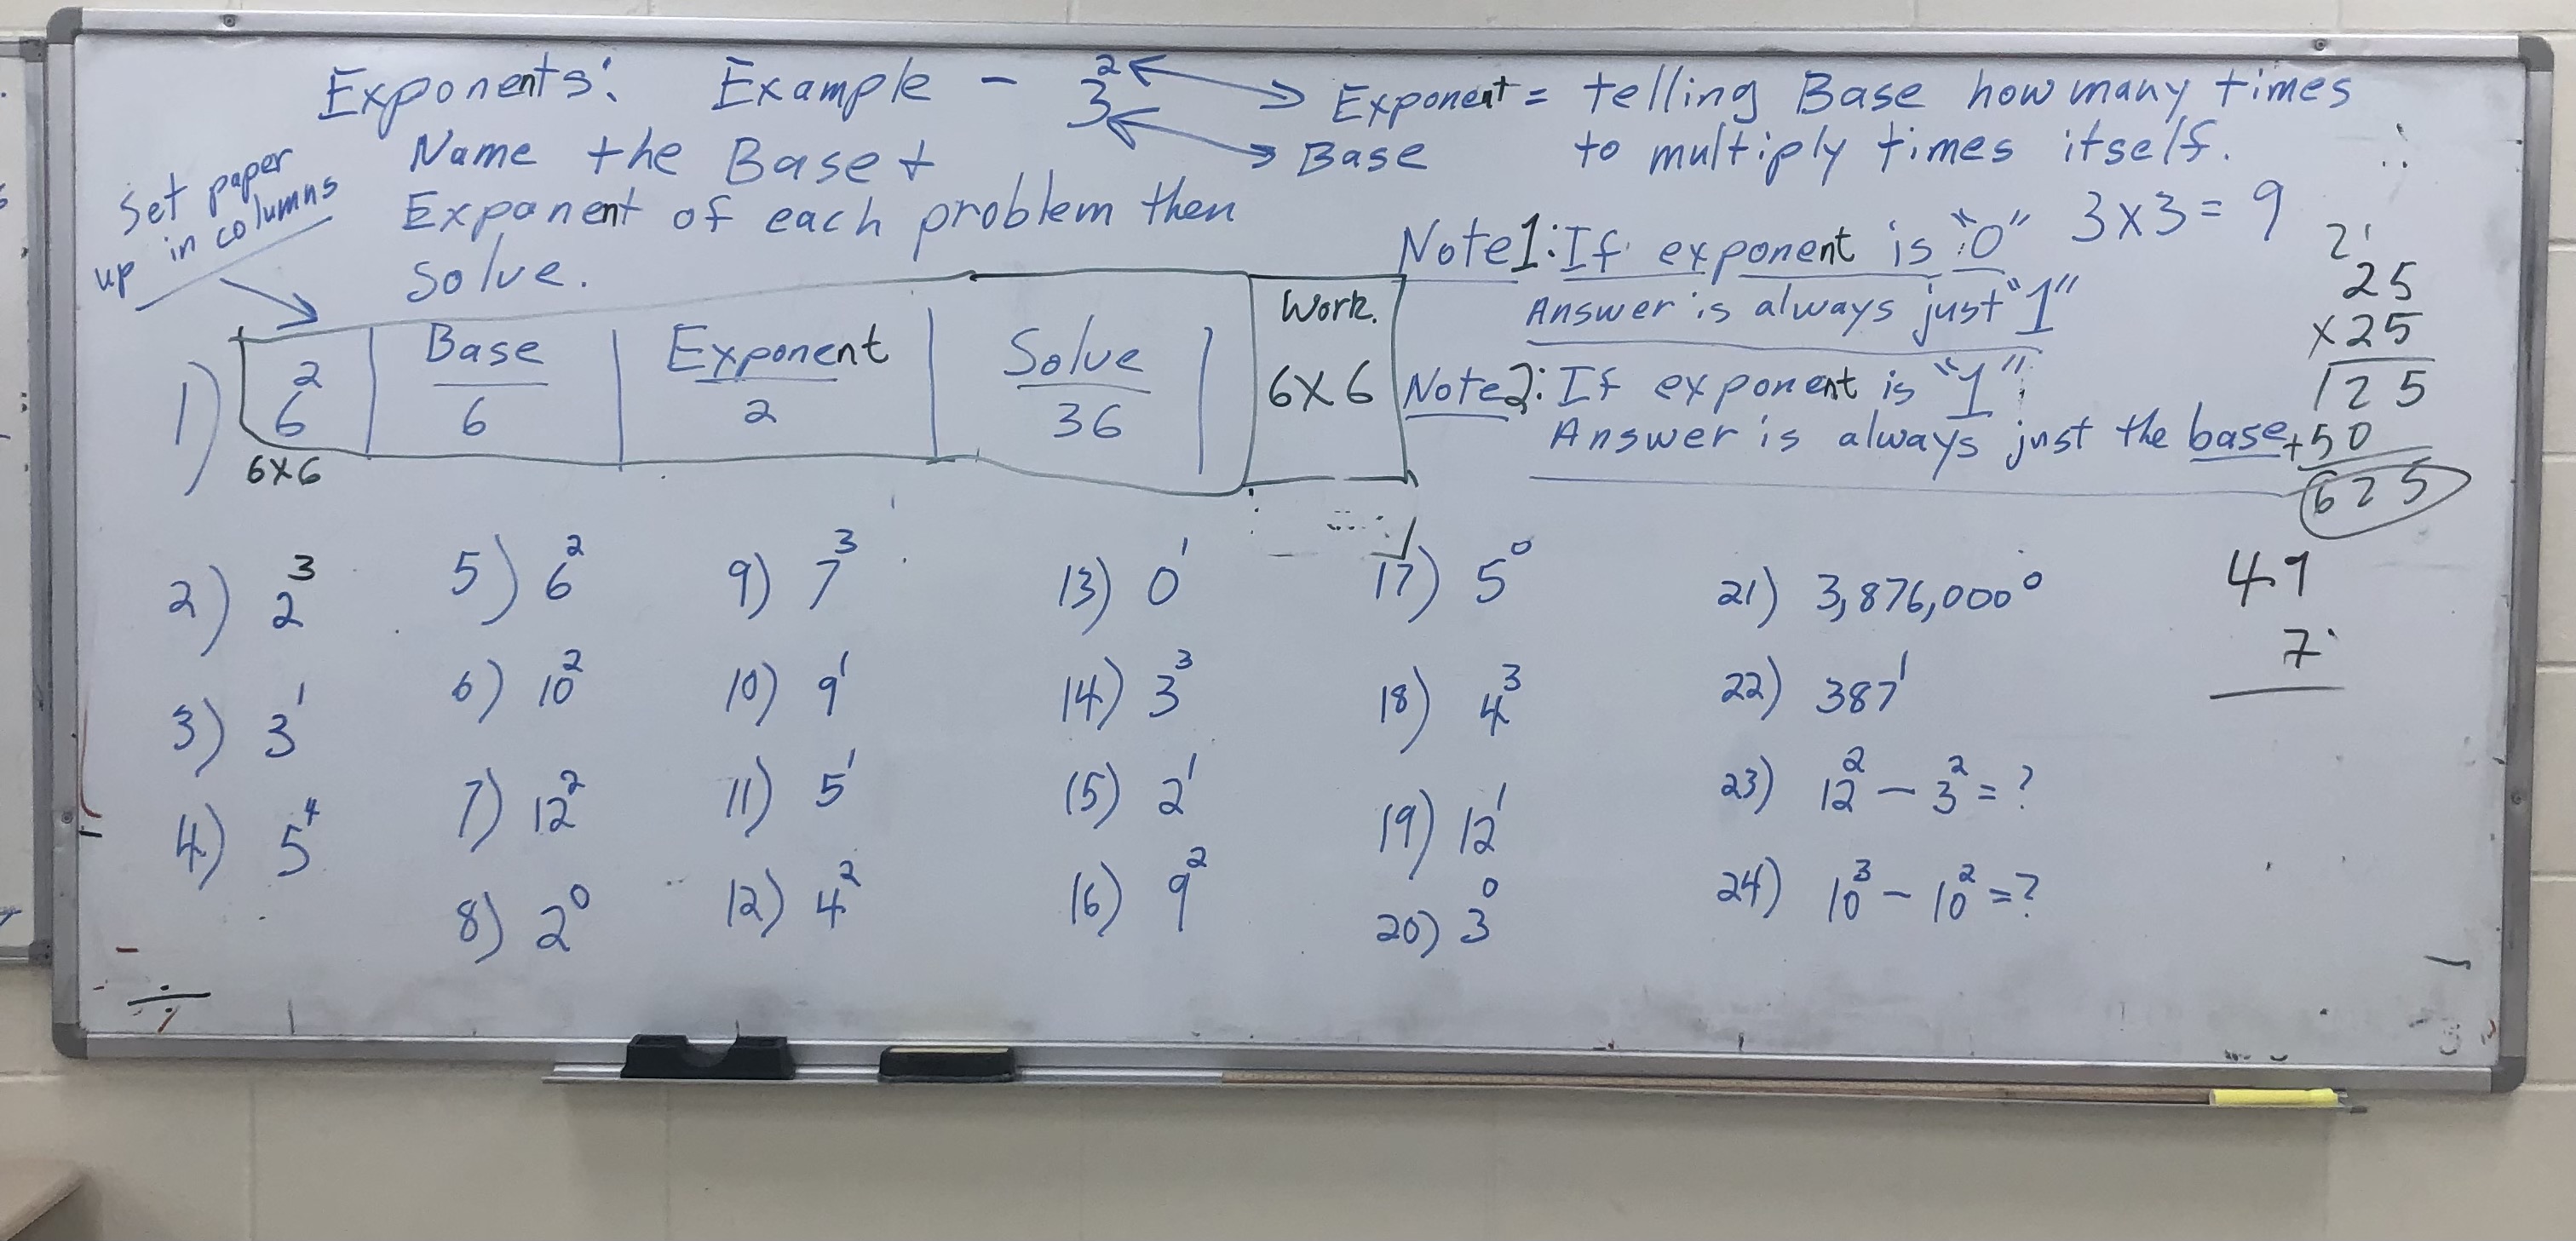 Exponents: Example - 3² Exponent = telling Base how many times
to multiply times itself.
Base
3x3=9
Set paper
up in columns
Name the Base +
Exponent of each problem then
solve.
Note1: If exponent is "0"
Answer is always just "1"
Note2: If exponent is "1"
Answer is always just the base
1) 6² Base Exponent Solve Work.
6 2 36 6x6
6x6
2 1
25
x25
125
+50
625
49
7
2) 2³
3) 3¹
4) 5⁴
5) 6²
6) 10²
7) 12²
8) 2⁰
9) 7³
10) 9¹
11) 5¹
12) 4²
13) 0¹
14) 3³
15) 2¹
16) 9²
17) 5⁰
18) 4³
19) 12¹
20) 3⁰
21) 3,876,000⁰
22) 387¹
23) 12² - 3² = ?
24) 10³ - 10² = ?